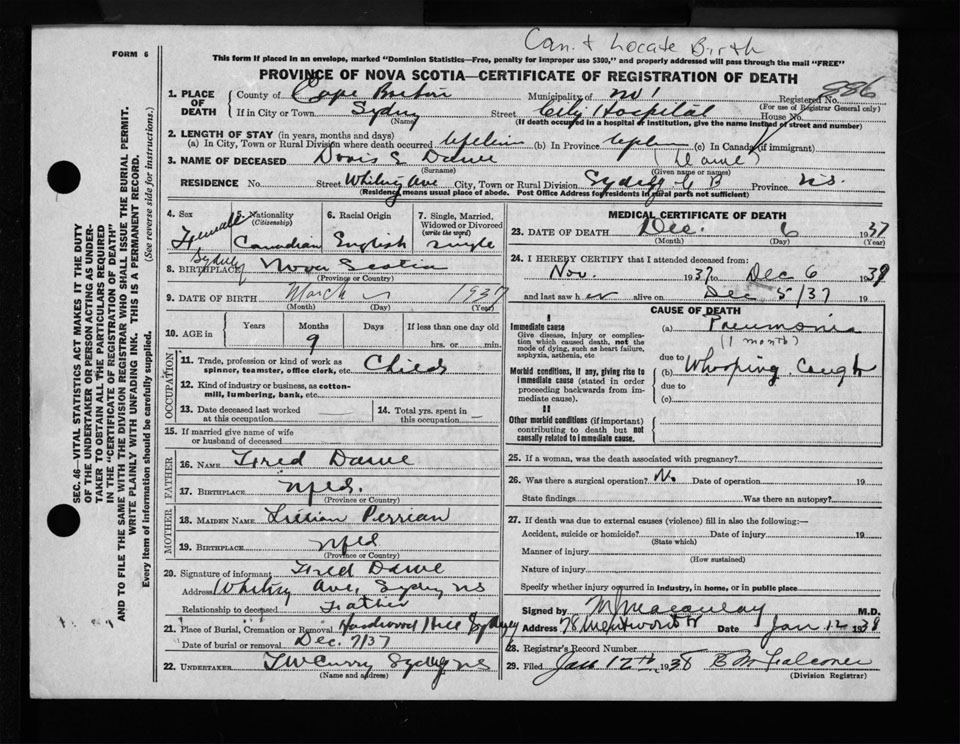 Can't Locate Birth
FORM 6
This form if placed in an envelope, marked "Dominion Statistics—Free, penalty for improper use $300," and properly addressed will pass through the mail "FREE"
PROVINCE OF NOVA SCOTIA—CERTIFICATE OF REGISTRATION OF DEATH
886
1. PLACE OF DEATH
County of Cape Breton Municipality of no 1 Registered No.
(For use of Registrar General only)
If in City or Town Sydney Street City Hospital House No.
(Name) (If death occurred in a hospital or institution, give the name instead of street and number)
2. LENGTH OF STAY (in years, months and days)
(a) In City, Town or Rural Division where death occurred lifetime (b) In Province (c) In Canada (if immigrant)
3. NAME OF DECEASED Doris E Dawe (Dawe)
(Surname) (Given name or names)
RESIDENCE No. Street Whitney Ave City, Town or Rural Division Sydney C B Province N.S.
(Residency means usual place of abode. Post Office Address for residents in rural parts not sufficient)
4. Sex Female
5. Nationality (Citizenship) Canadian
6. Racial Origin English
7. Single, Married, Widowed or Divorced (write the word) Single
8. BIRTHPLACE Sydney Nova Scotia
(Province or Country)
9. DATE OF BIRTH March 1937
(Month) (Day) (Year)
10. AGE in Years Months 9 Days If less than one day old hrs. or min.
OCCUPATION
11. Trade, profession or kind of work as spinner, teamster, office clerk, etc. Child
12. Kind of industry or business, as cotton-mill, lumbering, bank, etc.
13. Date deceased last worked at this occupation
14. Total yrs. spent in this occupation
15. If married give name of wife or husband of deceased
FATHER
16. NAME Fred Dawe
17. BIRTHPLACE Nfld.
(Province or Country)
MOTHER
18. MAIDEN NAME Lillian Perrian
19. BIRTHPLACE Nfld
(Province or Country)
20. Signature of informant Fred Dawe
Address Whitney Ave, Sydney NS
Relationship to deceased Father
21. Place of Burial, Cremation or Removal Hardwood Hill Sydney
Date of burial or removal Dec. 7/37
22. UNDERTAKER T W Curry Sydney NS
(Name and address)
MEDICAL CERTIFICATE OF DEATH
23. DATE OF DEATH Dec. 6 1937
(Month) (Day) (Year)
24. I HEREBY CERTIFY that I attended deceased from:
Nov. 1937 to Dec 6 1937
and last saw her alive on Dec 5/37 19
CAUSE OF DEATH
I
Immediate cause
Give disease, injury or complication which caused death, not the mode of dying, such as heart failure, asphyxia, asthenia, etc
(a) Pneumonia
(1 month)
due to
Morbid conditions, if any, giving rise to immediate cause (stated in order proceeding backwards from immediate cause).
(b) Whooping Cough
due to
(c)
II
Other morbid conditions (if important) contributing to death but not causally related to immediate cause.
25. If a woman, was the death associated with pregnancy?
26. Was there a surgical operation? No Date of operation 19
State findings Was there an autopsy?
27. If death was due to external causes (violence) fill in also the following:—
Accident, suicide or homicide? Date of injury 19
(State which)
Manner of injury
(How sustained)
Nature of injury
Specify whether injury occurred in industry, in home, or in public place
Signed by M Macaulay M.D.
Address 78 Wentworth Date Jan 12 1938
28. Registrar's Record Number
29. Filed Jan 12th 1938 B M Falconer
(Division Registrar)
SEC. 46—VITAL STATISTICS ACT MAKES IT THE DUTY
OF THE UNDERTAKER OR PERSON ACTING AS UNDERTAKER TO OBTAIN ALL THE PARTICULARS REQUIRED
IN THE "CERTIFICATE OF REGISTRATION OF DEATH"
AND TO FILE THE SAME WITH THE DIVISION REGISTRAR WHO SHALL ISSUE THE BURIAL PERMIT.
WRITE PLAINLY WITH UNFADING INK. THIS IS A PERMANENT RECORD.
Every item of information should be carefully supplied. (See reverse side for instructions.)